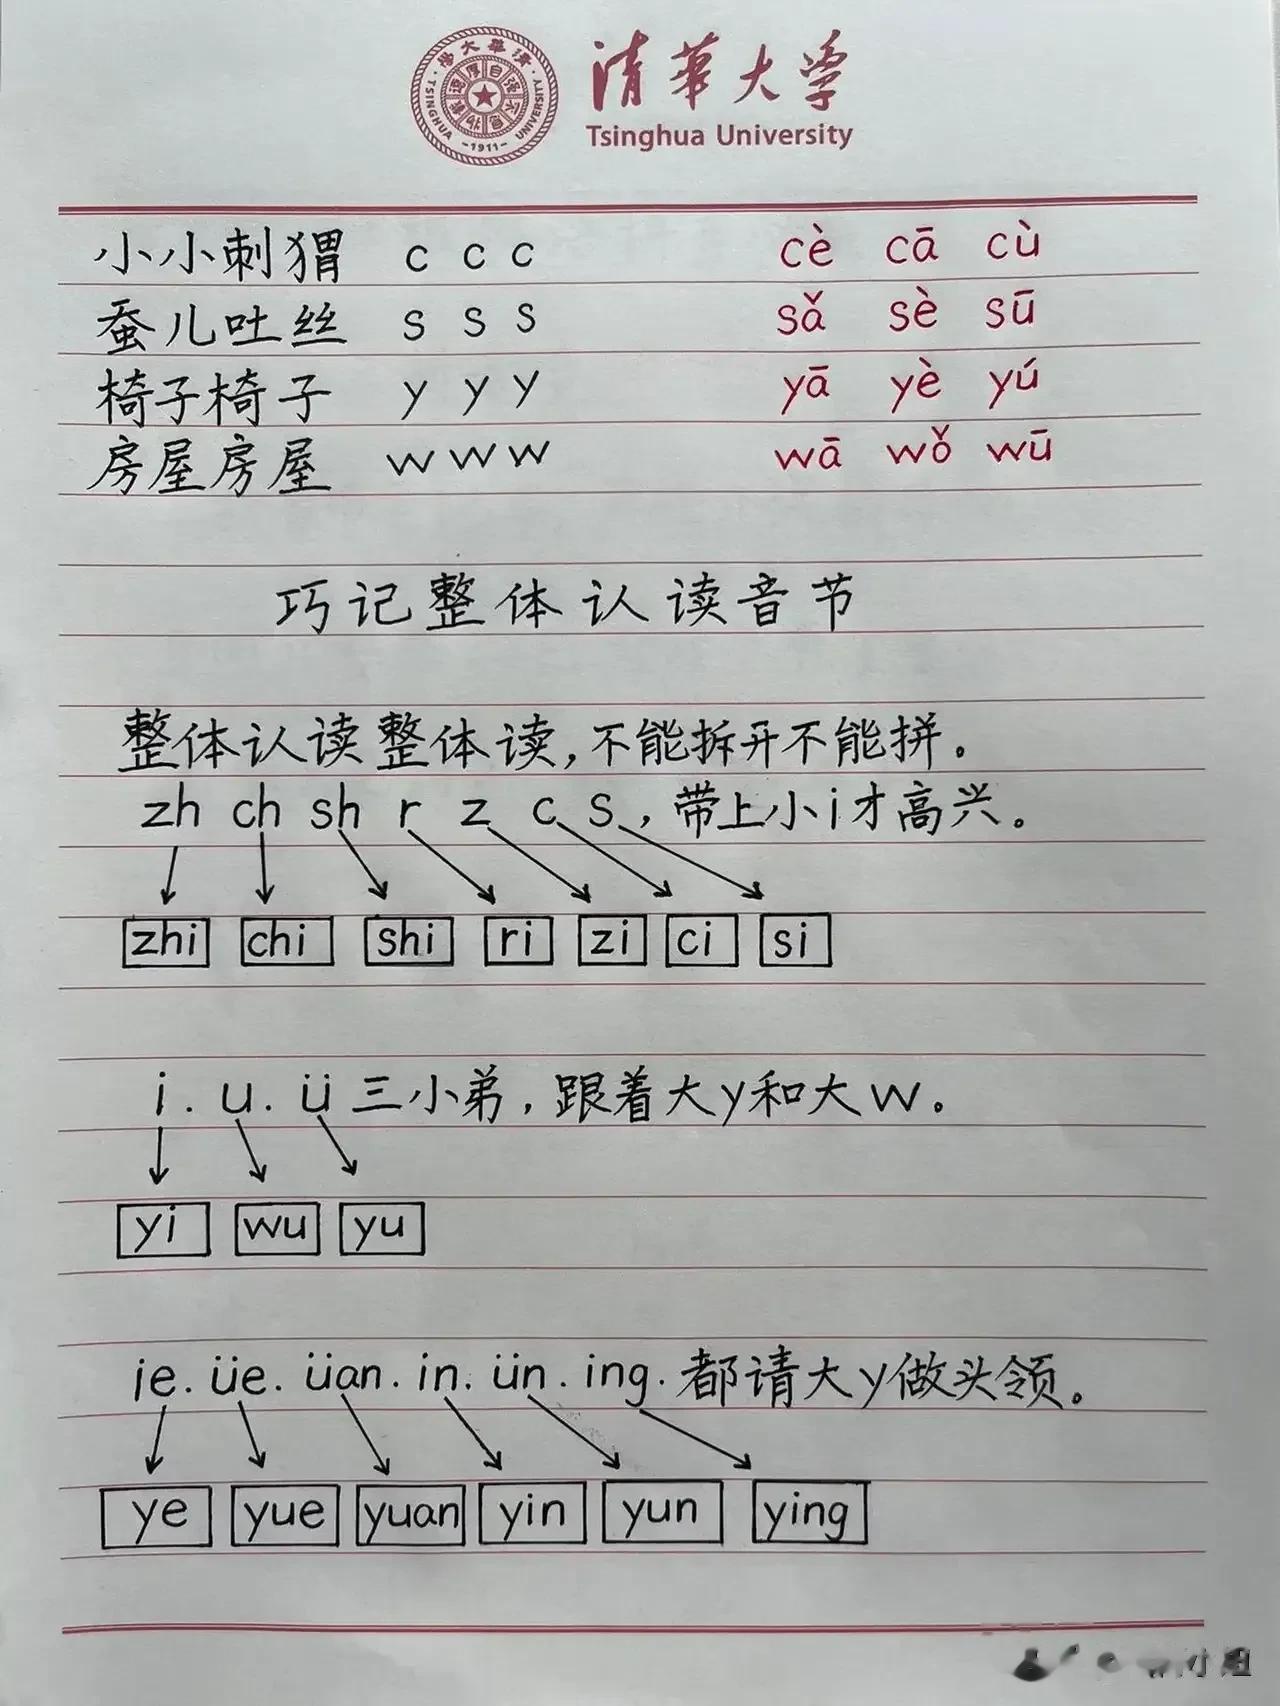 清华大学
Tsinghua University
TSINGHUA UNIVERSITY
-1911-
小小刺猬 c c c cè cā cù
蚕儿吐丝 s s s sǎ sè sū
椅子椅子 y y y yā yè yú
房屋房屋 w w w wā wǒ wū
巧记整体认读音节
整体认读整体读,不能拆开不能拼。
zh ch sh r z c s,带上小i才高兴。
zhi chi shi ri zi ci si
i. u. ü 三小弟,跟着大y和大w。
yi wu yu
ie. üe. üan. in. ün. ing. 都请大y做头领。
ye yue yuan yin yun ying